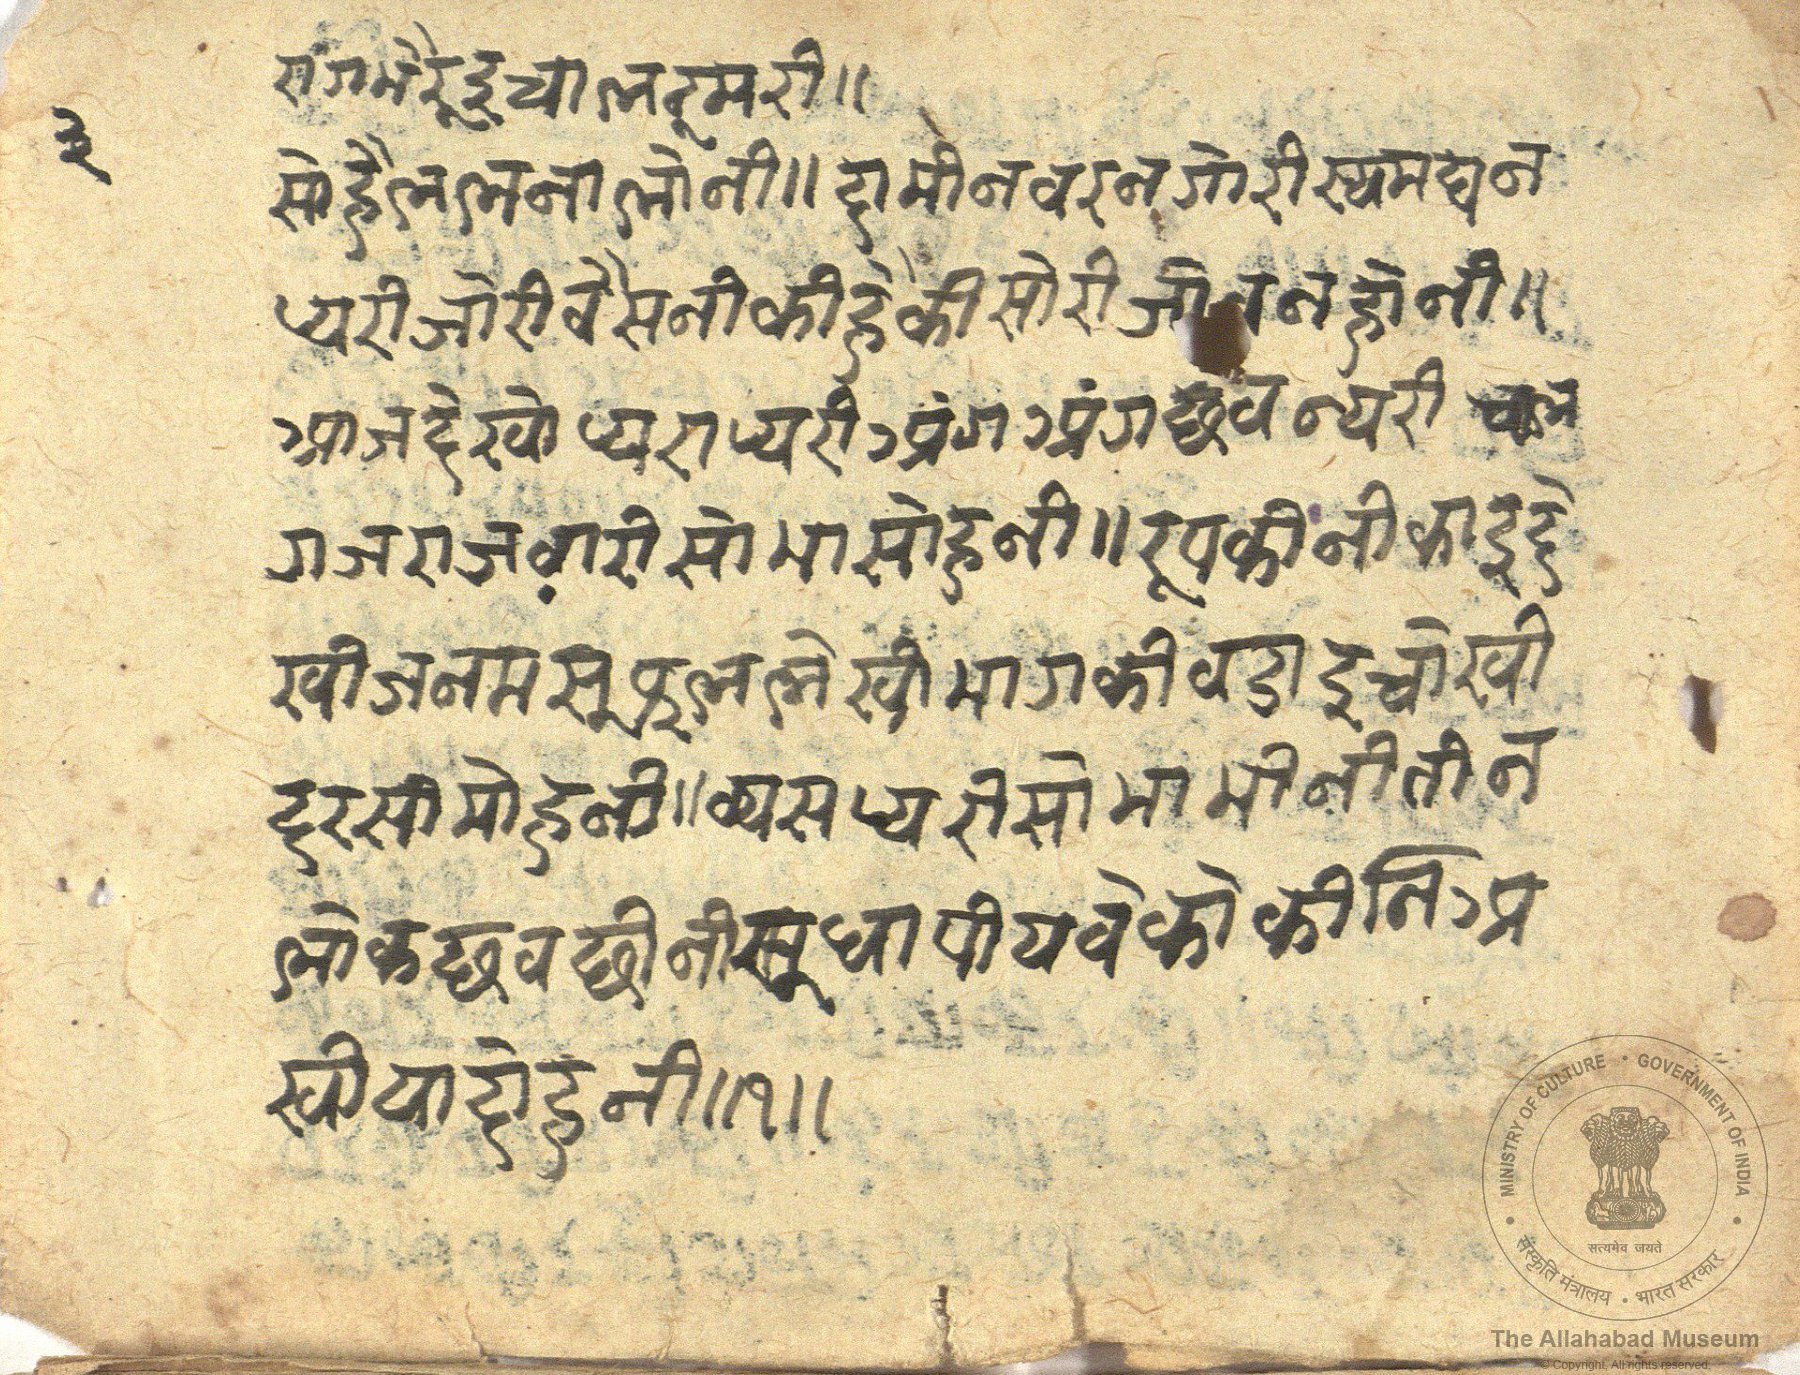 ३
रागमैरूइचालठूमरी॥
सोहैललनालोनी॥दामीनवरनगोरीस्यमघन
प्यरीजोरीवैसनीकीहैकीसोरीजोवनहोनी॥
आजदेखोप्यराप्यरीअंगअंगछवन्यरी चाल
गजराजवारीसोभासोहनी॥रूपकीनीकाइदे
खीजनमसूफललेखीभागकीवडाइचोखी
दरसीमोहनी॥व्यसप्यरीसोभाभीनीतीन
लोकछवछीनीसूधापीयवेकोकीनिअ
खीयादोहनी॥१॥
MINISTRY OF CULTURE • GOVERNMENT OF INDIA
सत्यमेव जयते
संस्कृति मंत्रालय • भारत सरकार
The Allahabad Museum
© Copyright, All rights reserved.